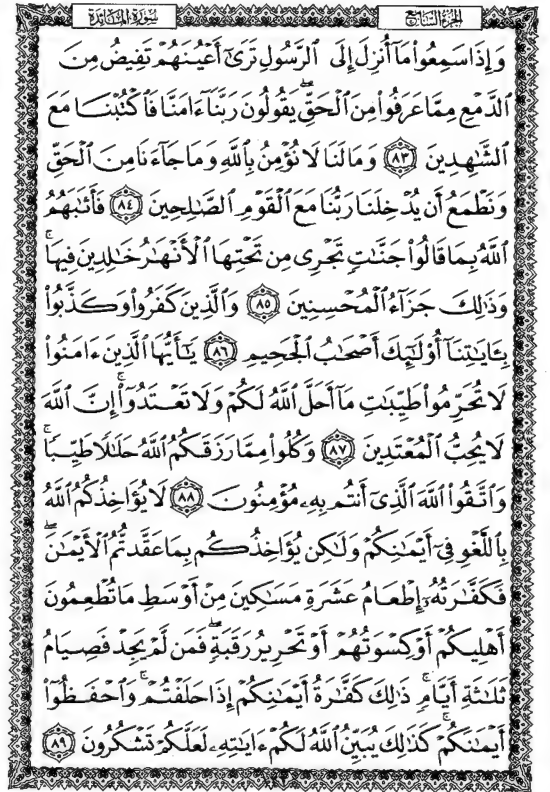 سورة المائدة
الجزء السابع
وَإِذَا سَمِعُوا۟ مَآ أُنزِلَ إِلَى ٱلرَّسُولِ تَرَىٰٓ أَعْيُنَهُمْ تَفِيضُ مِنَ
ٱلدَّمْعِ مِمَّا عَرَفُوا۟ مِنَ ٱلْحَقِّ ۖ يَقُولُونَ رَبَّنَآ ءَامَنَّا فَٱكْتُبْنَا مَعَ
ٱلشَّـٰهِدِينَ ٨٣ وَمَا لَنَا لَا نُؤْمِنُ بِٱللَّهِ وَمَا جَآءَنَا مِنَ ٱلْحَقِّ
وَنَطْمَعُ أَن يُدْخِلَنَا رَبُّنَا مَعَ ٱلْقَوْمِ ٱلصَّـٰلِحِينَ ٨٤ فَأَثَـٰبَهُمُ
ٱللَّهُ بِمَا قَالُوا۟ جَنَّـٰتٍ تَجْرِى مِن تَحْتِهَا ٱلْأَنْهَـٰرُ خَـٰلِدِينَ فِيهَا ۚ
وَذَٰلِكَ جَزَآءُ ٱلْمُحْسِنِينَ ٨٥ وَٱلَّذِينَ كَفَرُوا۟ وَكَذَّبُوا۟
بِـَٔايَـٰتِنَآ أُو۟لَـٰٓئِكَ أَصْحَـٰبُ ٱلْجَحِيمِ ٨٦ يَـٰٓأَيُّهَا ٱلَّذِينَ ءَامَنُوا۟
لَا تُحَرِّمُوا۟ طَيِّبَـٰتِ مَآ أَحَلَّ ٱللَّهُ لَكُمْ وَلَا تَعْتَدُوٓا۟ ۚ إِنَّ ٱللَّهَ
لَا يُحِبُّ ٱلْمُعْتَدِينَ ٨٧ وَكُلُوا۟ مِمَّا رَزَقَكُمُ ٱللَّهُ حَلَـٰلًا طَيِّبًا ۚ
وَٱتَّقُوا۟ ٱللَّهَ ٱلَّذِىٓ أَنتُم بِهِۦ مُؤْمِنُونَ ٨٨ لَا يُؤَاخِذُكُمُ ٱللَّهُ
بِٱللَّغْوِ فِىٓ أَيْمَـٰنِكُمْ وَلَـٰكِن يُؤَاخِذُكُم بِمَا عَقَّدتُّمُ ٱلْأَيْمَـٰنَ ۖ
فَكَفَّـٰرَتُهُۥٓ إِطْعَامُ عَشَرَةِ مَسَـٰكِينَ مِنْ أَوْسَطِ مَا تُطْعِمُونَ
أَهْلِيكُمْ أَوْ كِسْوَتُهُمْ أَوْ تَحْرِيرُ رَقَبَةٍ ۖ فَمَن لَّمْ يَجِدْ فَصِيَامُ
ثَلَـٰثَةِ أَيَّامٍ ۚ ذَٰلِكَ كَفَّـٰرَةُ أَيْمَـٰنِكُمْ إِذَا حَلَفْتُمْ ۚ وَٱحْفَظُوٓا۟
أَيْمَـٰنَكُمْ ۚ كَذَٰلِكَ يُبَيِّنُ ٱللَّهُ لَكُمْ ءَايَـٰتِهِۦ لَعَلَّكُمْ تَشْكُرُونَ ٨٩